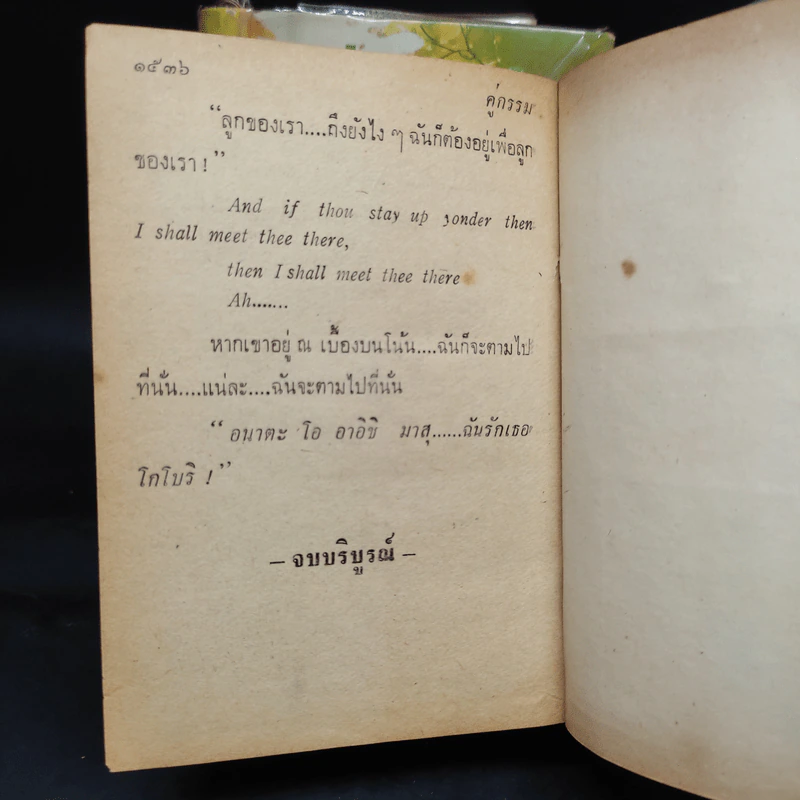 ๑๕๓๖
คู่กรรม
“ลูกของเรา....ถึงยังไง ๆ ฉันก็ต้องอยู่เพื่อลูก
ของเรา !”
And if thou stay up yonder then
I shall meet thee there,
then I shall meet thee there
Ah.......
หากเขาอยู่ ณ เบื้องบนโน้น....ฉันก็จะตามไป
ที่นั่น....แน่ละ....ฉันจะตามไปที่นั่น
“ อนาตะ โอ อาอิชิ มาสุ......ฉันรักเธอ
โกโบริ !”
– จบบริบูรณ์ –